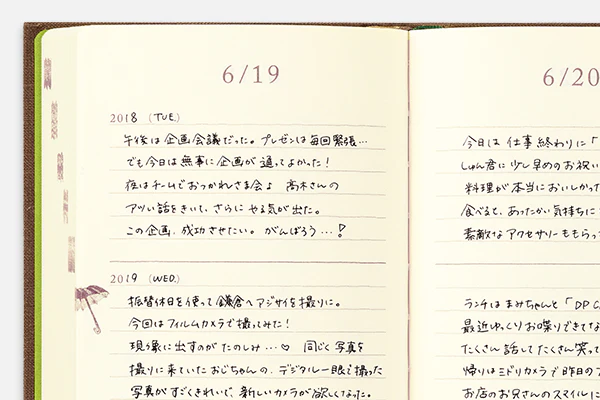 6/19
2018 (TUE.)
午後は企画会議だった。プレゼンは毎回緊張…
でも今日は無事に企画が通ってよかった！
夜はチームでおつかれさま会♪ 高木さんの
アツい話をきいて、さらにやる気が出た。
この企画、成功させたい。がんばろう…！
2019 (WED.)
振替休日を使って鎌倉へアジサイを撮りに。
今回はフィルムカメラで撮ってみた！
現像に出すのがたのしみ…♡ 同じく写真を
撮りに来ていたおじちゃんの、デジタル一眼で撮った
写真がすごくきれいで、新しいカメラが欲しくなった。
6/20
今日は仕事終わりに「
しゅん君に少し早めのお祝い
料理が本当においしかった
食べると、あったかい気持ちに
素敵なアクセサリーももら
ランチはまみちゃんと「DP C
最近ゆっくりお喋りできてな
たくさん話してたくさん笑っ
帰りはミドリカメラで昨日の
お店のお兄さんのスマイルに